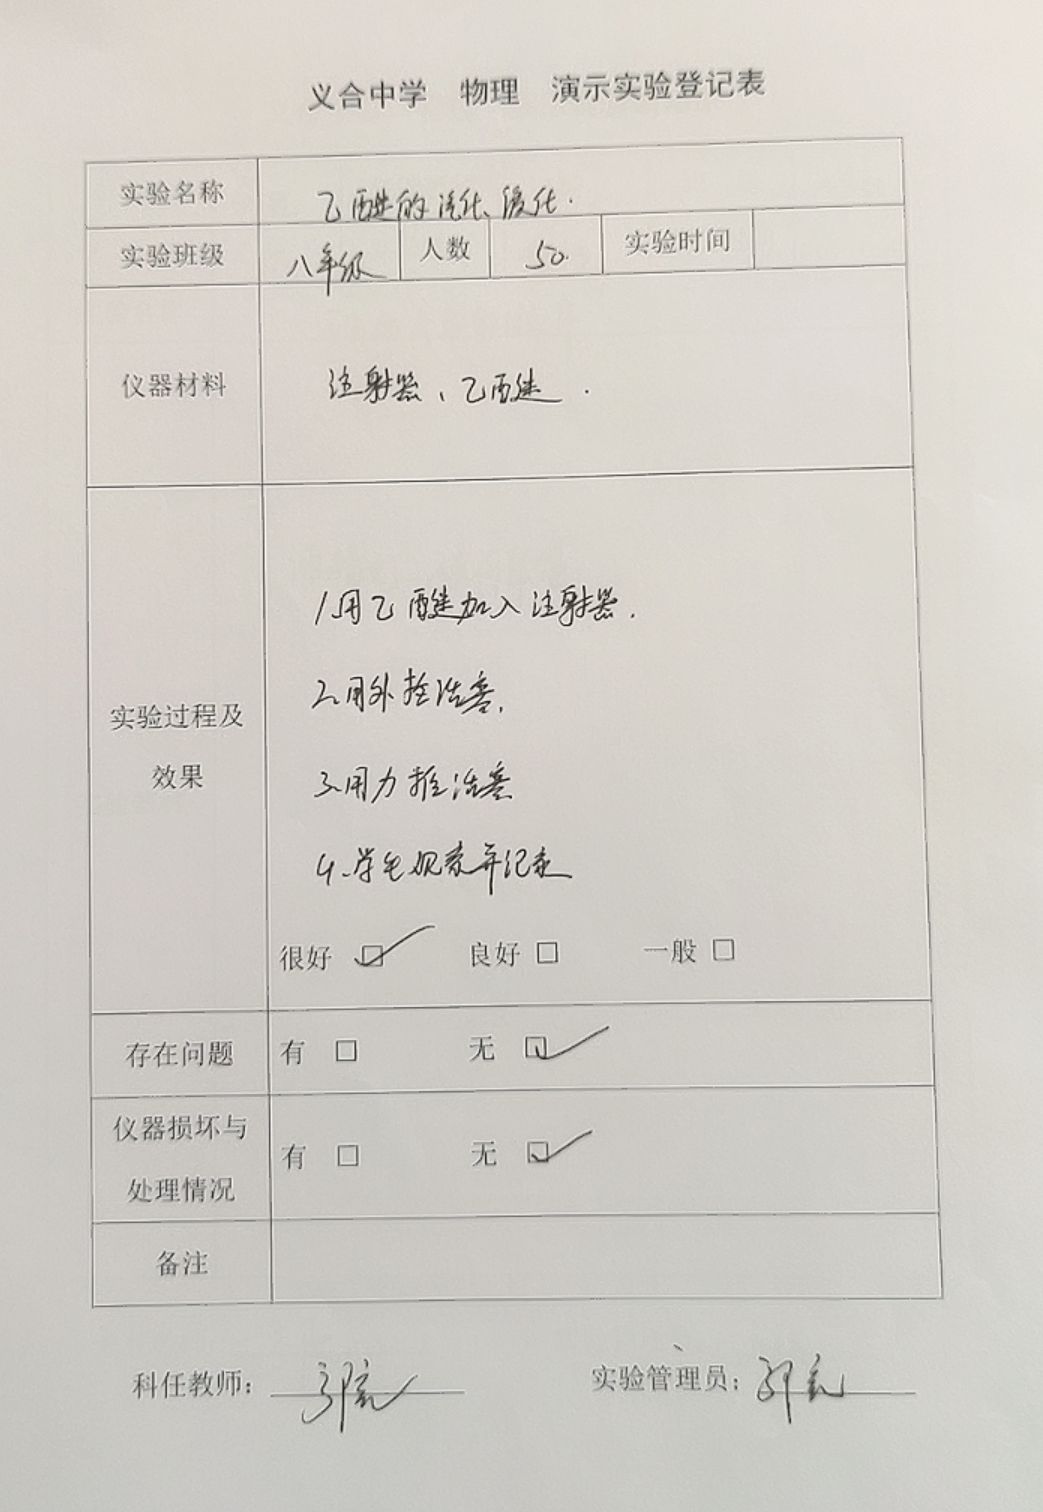 义合中学 物理 演示实验登记表
实验名称 乙醚的汽化、液化.
实验班级 八年级 人数 50. 实验时间
仪器材料 注射器、乙醚.
1.用乙醚加入注射器.
2.用外拴活塞.
实验过程及
效果
3.用力推活塞
4.学生观察并记录
很好 ☑ 良好 □ 一般 □
存在问题 有 □ 无 ☑
仪器损坏与
处理情况
有 □ 无 ☑
备注
科任教师: 实验管理员: